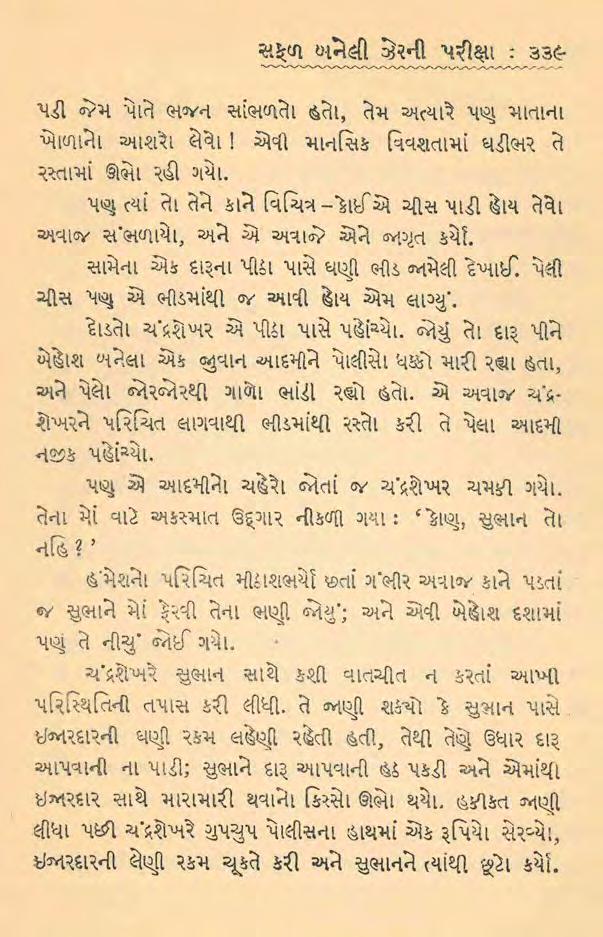 સફળ બનેલી ઝેરની પરીક્ષા : ૩૩૯
પડી જેમ પોતે ભજન સાંભળતો હતો, તેમ અત્યારે પણ માતાના
ખોળાનો આશરો લેવો ! એવી માનસિક વિવશતામાં ઘડીભર તે
રસ્તામાં ઊભો રહી ગયો.
પણ ત્યાં તો તેને કાને વિચિત્ર – કોઈ એ ચીસ પાડી હોય તેવો
અવાજ સંભળાયો, અને એ અવાજે એને જાગૃત કર્યો.
સામેના એક દારૂના પીઠા પાસે ઘણી ભીડ જામેલી દેખાઈ. પેલી
ચીસ પણ એ ભીડમાંથી જ આવી હોય એમ લાગ્યું.
દોડતો ચંદ્રશેખર એ પીઠા પાસે પહોંચ્યો. જોયું તો દારૂ પીને
બેહોશ બનેલા એક જુવાન આદમીને પોલીસો ધક્કો મારી રહ્યા હતા,
અને પેલો જોરજોરથી ગાળો ભાંડી રહ્યો હતો. એ અવાજ ચંદ્ર-
શેખરને પરિચિત લાગવાથી ભીડમાંથી રસ્તો કરી તે પેલા આદમી
નજીક પહોંચ્યો.
પણ એ આદમીનો ચહેરો જોતાં જ ચંદ્રશેખર ચમકી ગયો.
તેના મોં વાટે અકસ્માત ઉદ્દગાર નીકળી ગયા : ‘કોણ, સુભાન તો
નહિ ? ’
હંમેશનો પરિચિત મીઠાશભર્યો છતાં ગંભીર અવાજ કાને પડતાં
જ સુભાને મોં ફેરવી તેના ભણી જોયું; અને એવી બેહોશ દશામાં
પણ તે નીચું જોઈ ગયો.
ચંદ્રશેખરે સુભાન સાથે કશી વાતચીત ન કરતાં આખી
પરિસ્થિતિની તપાસ કરી લીધી. તે જાણી શક્યો કે સુભાન પાસે
ઇજારદારની ઘણી રકમ લહેણી રહેતી હતી, તેથી તેણે ઉધાર દારૂ
આપવાની ના પાડી; સુભાને દારૂ આપવાની હઠ પકડી અને એમાંથી
ઇજારદાર સાથે મારામારી થવાનો કિસ્સો ઊભો થયો. હકીકત જાણી
લીધા પછી ચંદ્રશેખરે ગુપચુપ પોલીસના હાથમાં એક રૂપિયો સેરવ્યો,
ઇજારદારની લેણી રકમ ચૂકતે કરી અને સુભાનને ત્યાંથી છૂટો કર્યો.